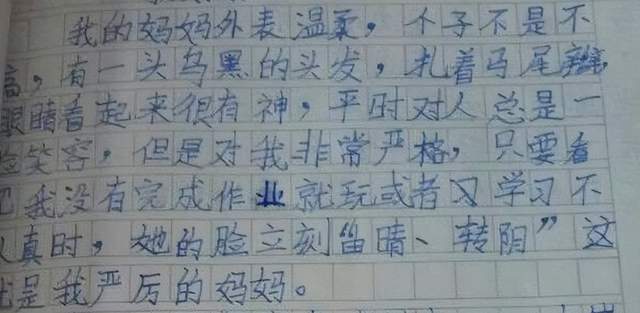 我的妈妈外表温柔，个子不是不
高，有一头乌黑的头发，扎着马尾辫，
眼睛看起来很有神，平时对人总是一
脸笑容，但是对我非常严格，只要看
见我没有完成作业就玩或者习学习不
认真时，她的脸立刻“由晴、转阴”这
就是我严厉的妈妈。